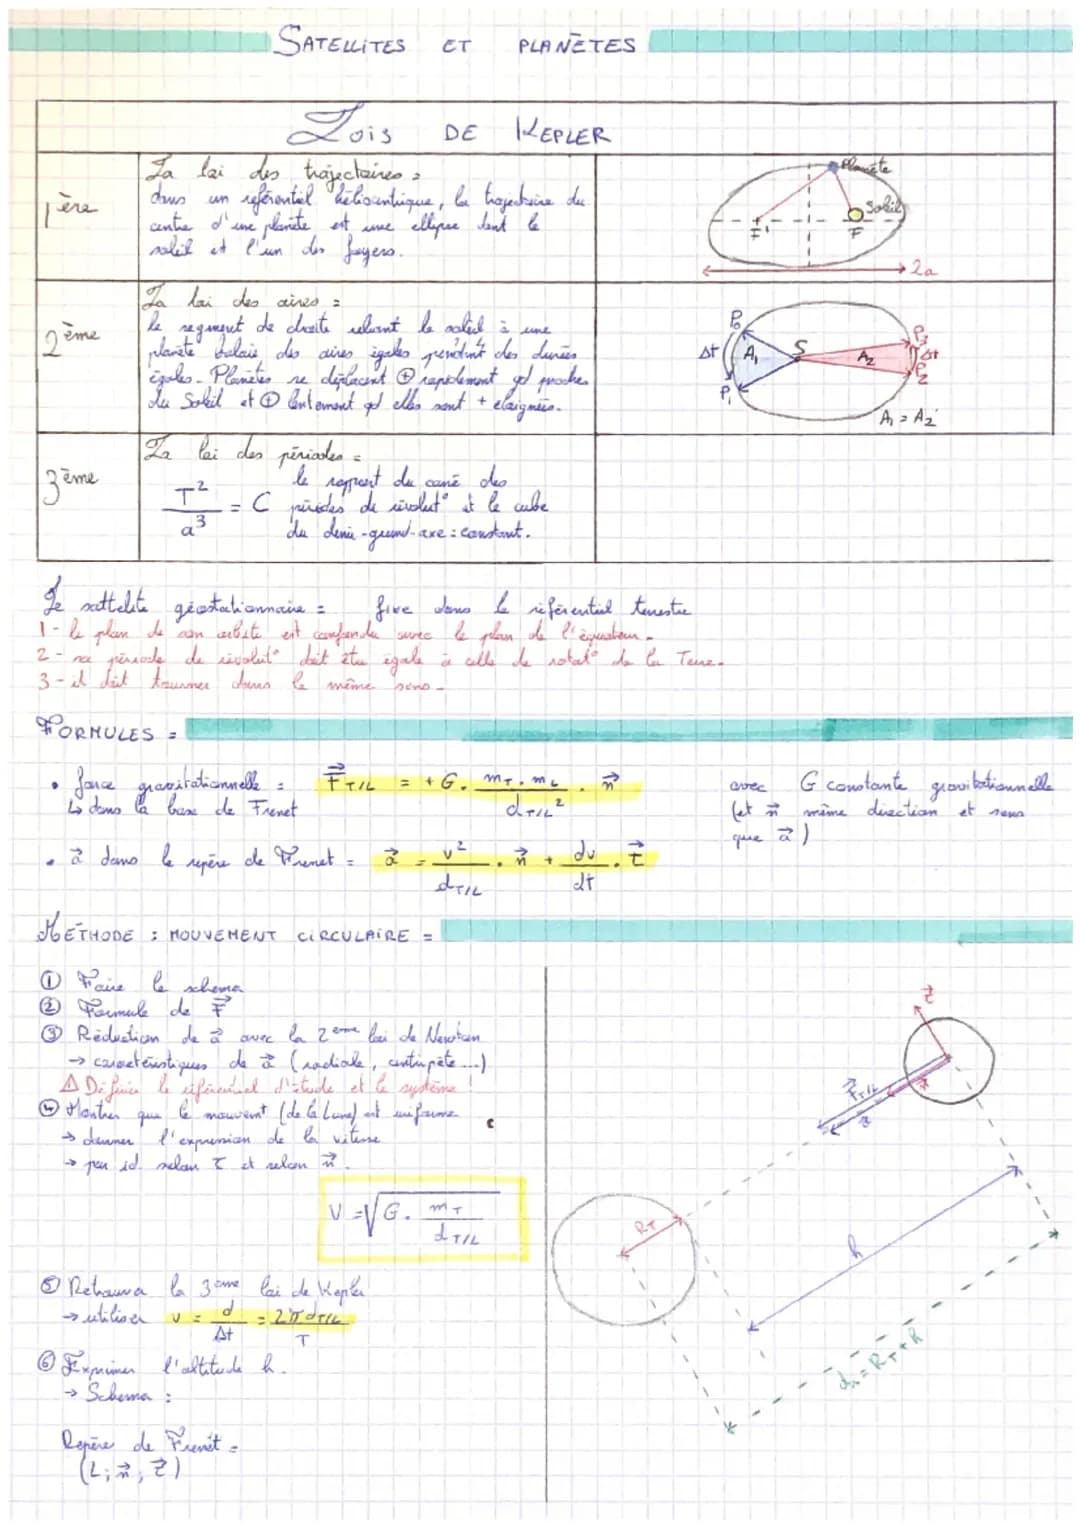 SATELLITES ET PLANÈTES
Lois DE KEPLER
1ère
La loi des trajectoires =
dans un référentiel héliocentrique, la trajectoire du
centre d'une planète est une ellipse dont le
soleil est l'un des foyers.
Planète
Soleil
F'
F
2a
2ème
La loi des aires =
le segment de droite reliant le soleil à une
planète balaie des aires égales pendant des durées
égales. Planètes se déplacent ⊕ rapidement qd proches
du Soleil et ⊕ lentement qd elles sont + éloignées.
P₀
Δt
A₁
S
A₂
P₃
Δt
P₂
P₁
A₁ = A₂
3ème
La loi des périodes =
T² / a³ = C
le rapport du carré des
périodes de révolut° et le cube
du demi-grand-axe = constant.
Le sattelite géostationnaire = fixe dans le référentiel terrestre
1- le plan de son orbite est confondu avec le plan de l'équateur.
2- sa période de révolut° doit être égale à celle de rotat° de la Terre.
3- il doit tourner dans le même sens.
FORMULES =
• force gravitationnelle = F⃗T/L = + G. mT . mL / dT/L² . n⃗
↳ dans la base de Frenet
avec G constante gravitationnelle
(et n⃗ même direction et sens
que a⃗)
• a⃗ dans le repère de Frenet = a⃗ = v² / dT/L . n⃗ + dv / dt . τ⃗
MÉTHODE : MOUVEMENT CIRCULAIRE =
① Faire le schema
② Formule de F⃗
③ Réduction de a⃗ avec la 2ème loi de Newton
→ caractéristiques de a⃗ (radiale, centripète ...)
⚠ Définir le référentiel d'étude et le système !
④ Montrer que le mouvemt (de la Lune) est uniforme
→ donner l'expression de la vitesse
→ par id. selon τ et selon n⃗.
V = √G. mT / dT/L
⑤ Retrouver la 3ème loi de Kepler
→ utiliser v = d / Δt = 2π dT/L / T
⑥ Exprimer l'altitude h.
→ Schema :
Repère de Frenet =
(L; n⃗; τ⃗)
τ⃗
F⃗T/L
RT
h
= RT + h